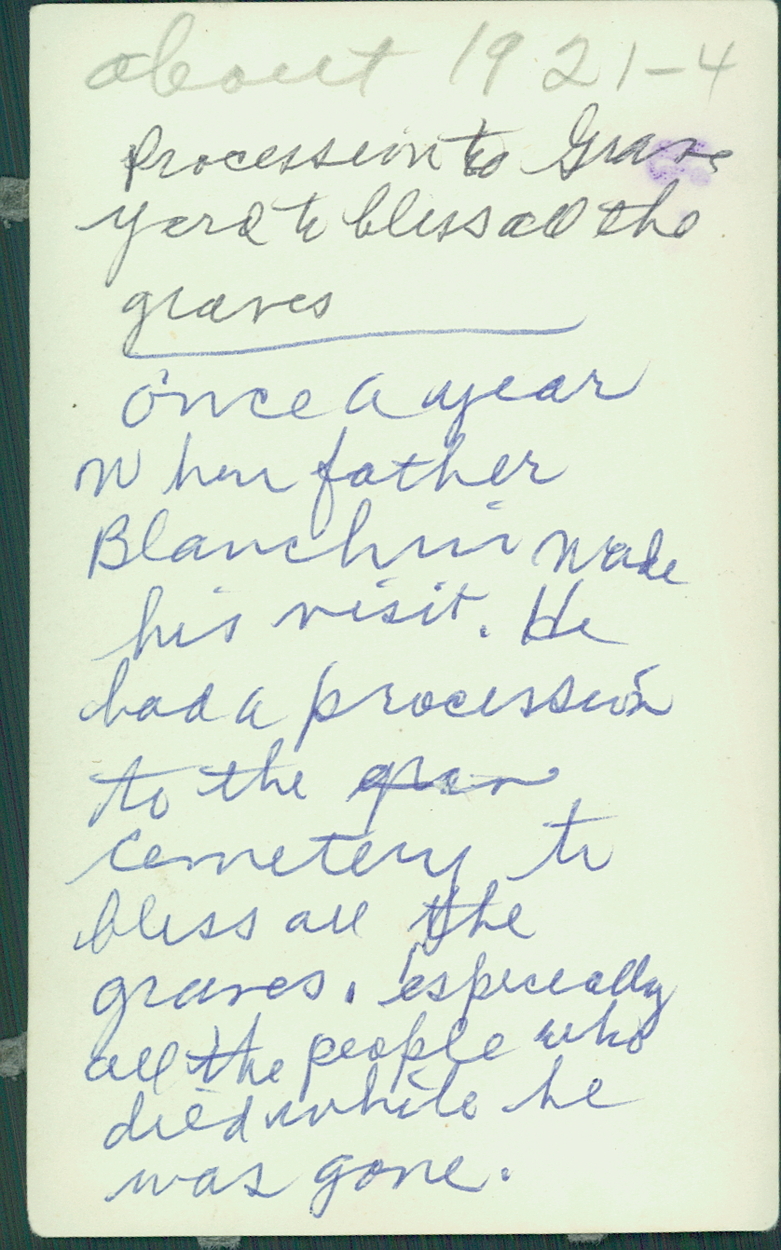 about 1921-4
Procession to Grave
yard to bless all the
graves
once a year
when father
Blanchini made
his visit. He
had a procession
to the grav
cemetery to
bless all the
graves. especially
all the people who
died while he
was gone.